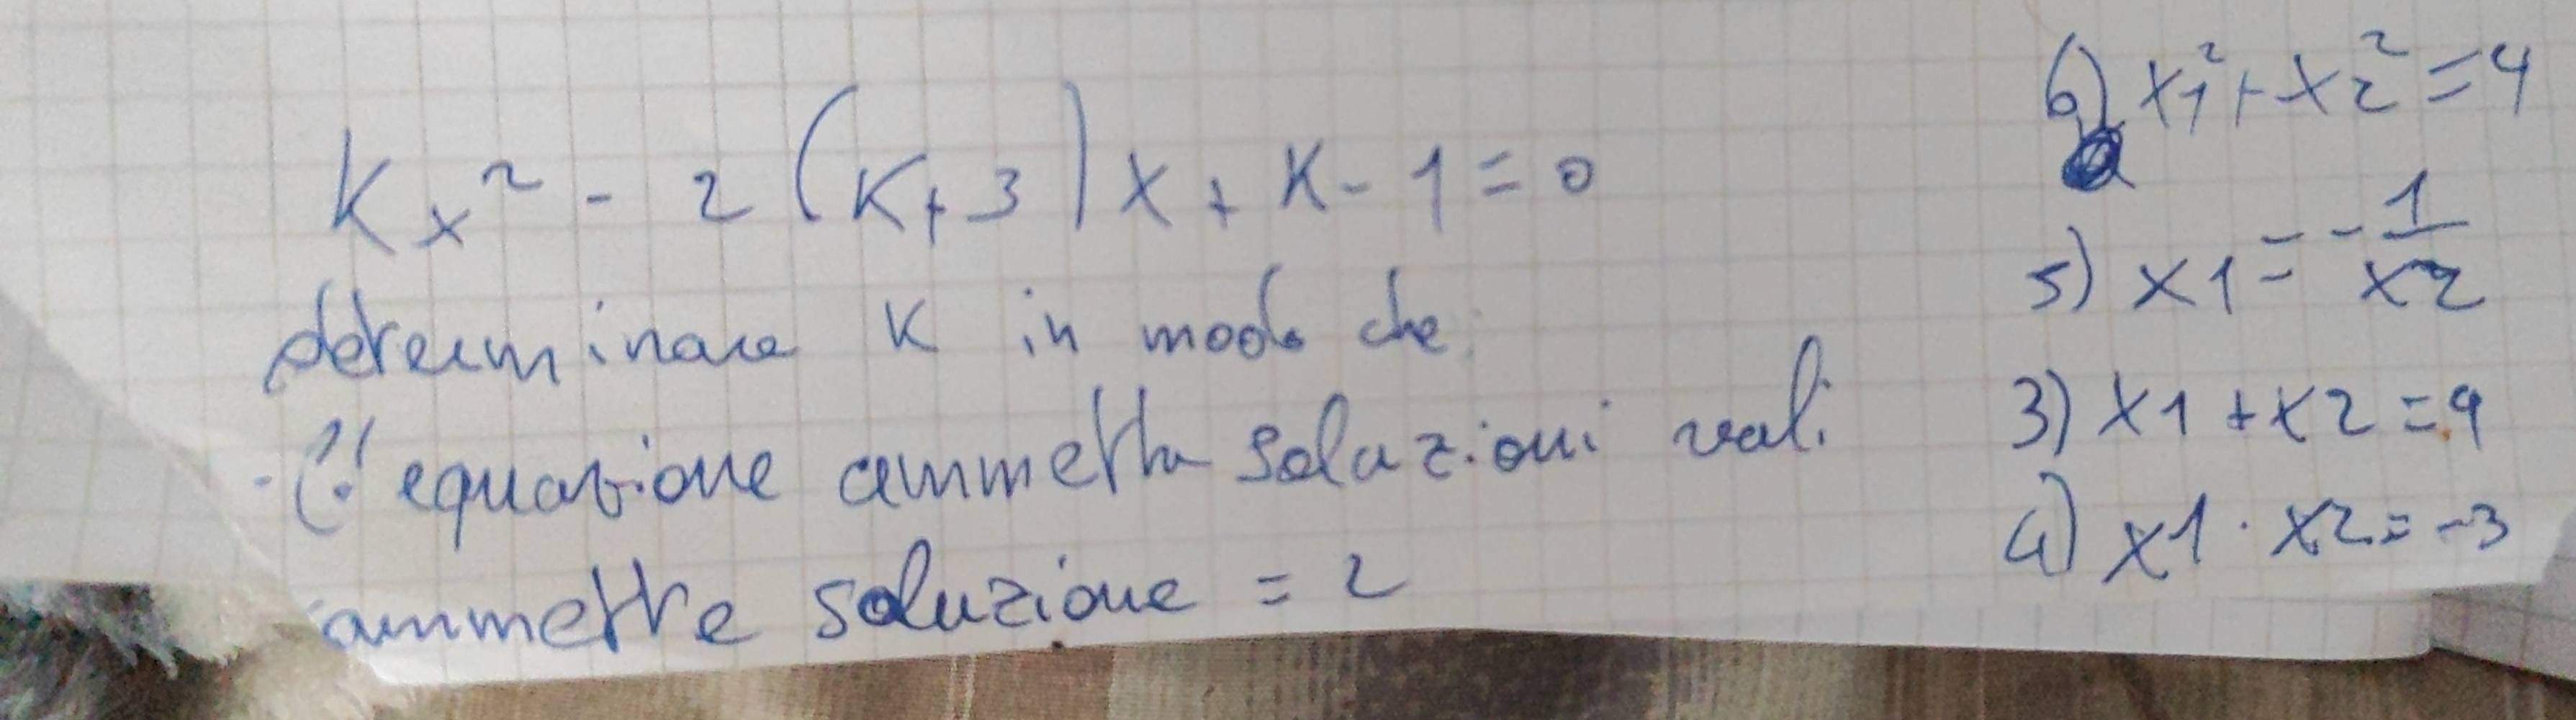 Kx² - 2(K+3)x + K - 1 = 0
determinare K in modo che:
- l'equazione ammetta soluzioni reali
ammette soluzione = 2
6) x1² + x2² = 4
5) x1 = - 1/x2
3) x1 + x2 = 9
4) x1 · x2 = -3